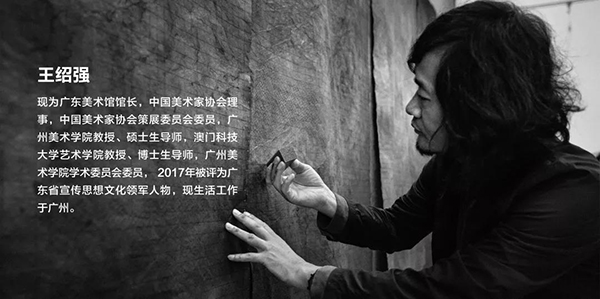 王绍强
现为广东美术馆馆长，中国美术家协会理
事，中国美术家协会策展委员会委员，广
州美术学院教授、硕士生导师，澳门科技
大学艺术学院教授、博士生导师，广州美
术学院学术委员会委员， 2017年被评为广
东省宣传思想文化领军人物，现生活工作
于广州。